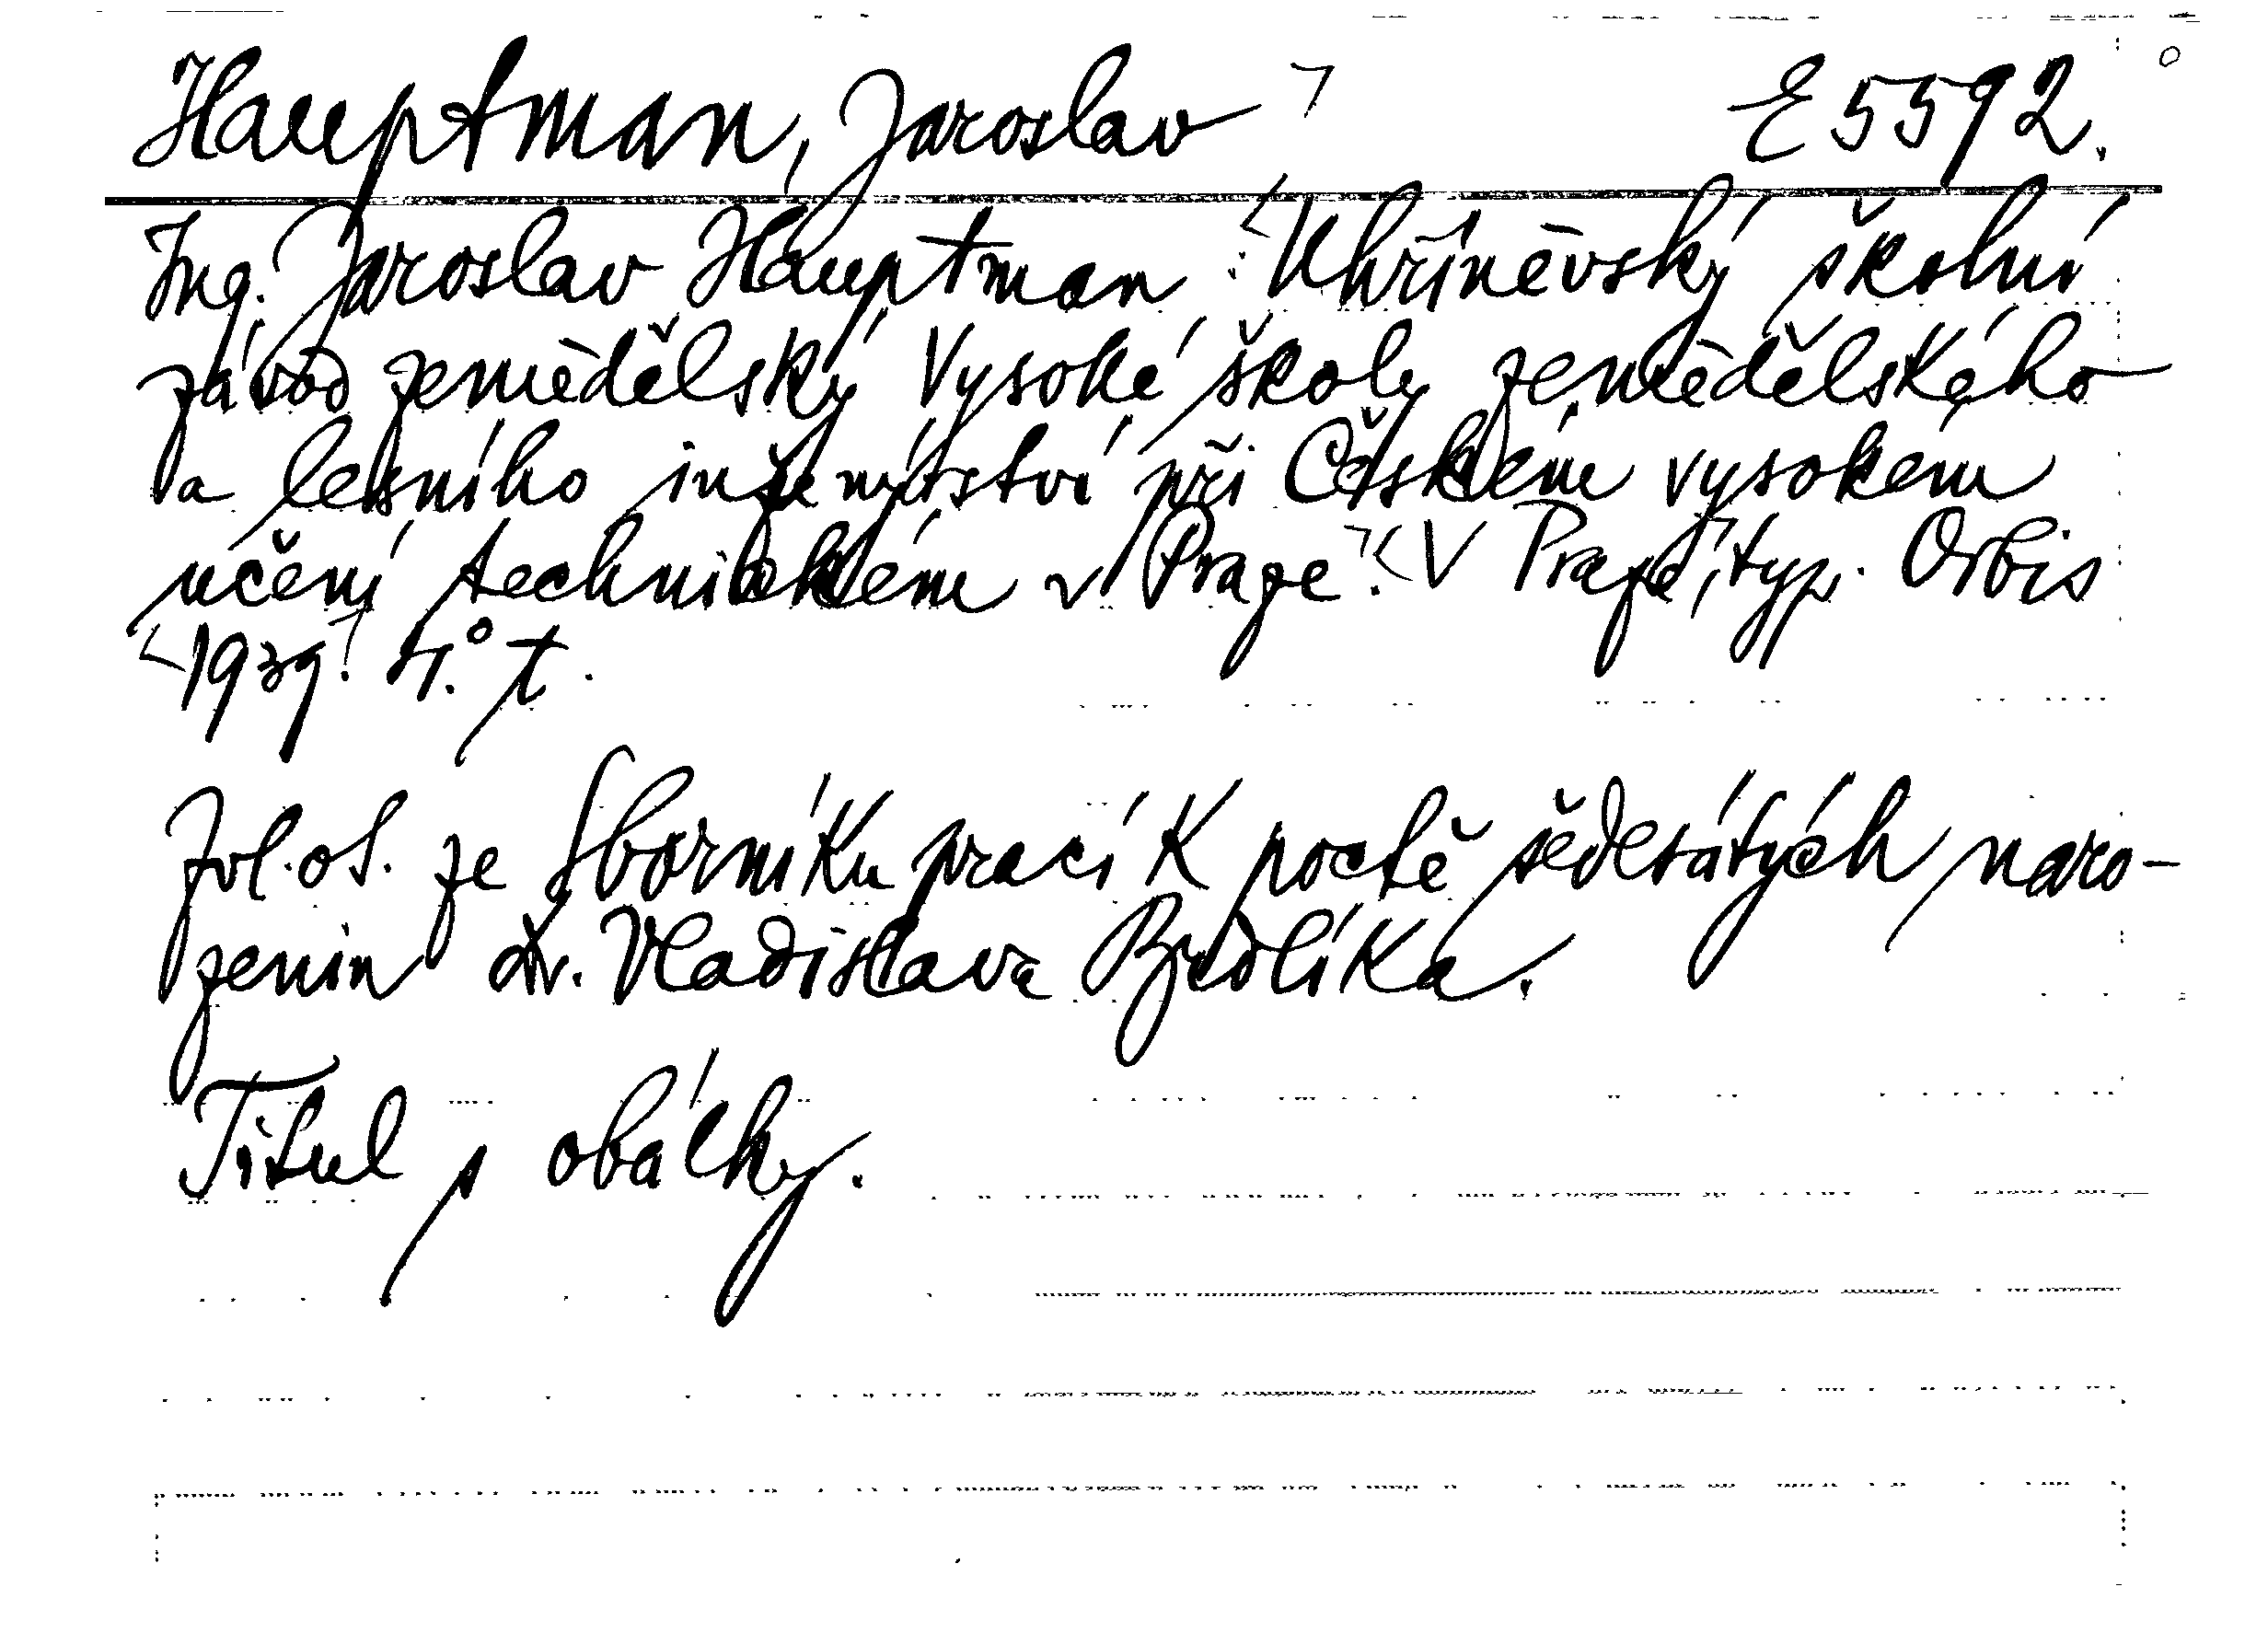 Hauptman, Jaroslav E 5592.
Ing. Jaroslav Hauptman : Uhříněvský školní
závod zemědělský Vysoké školy zemědělského
a lesního inženýrství při Českém vysokém
učení technickém v Praze. V Praze, typ. Orbis
1939. 4.° t.
Zvl. ot. ze Sborníku prací k poctě šedesátých naro-
zenin dr. Vladislava Brdlíka.
Titul s obálky.